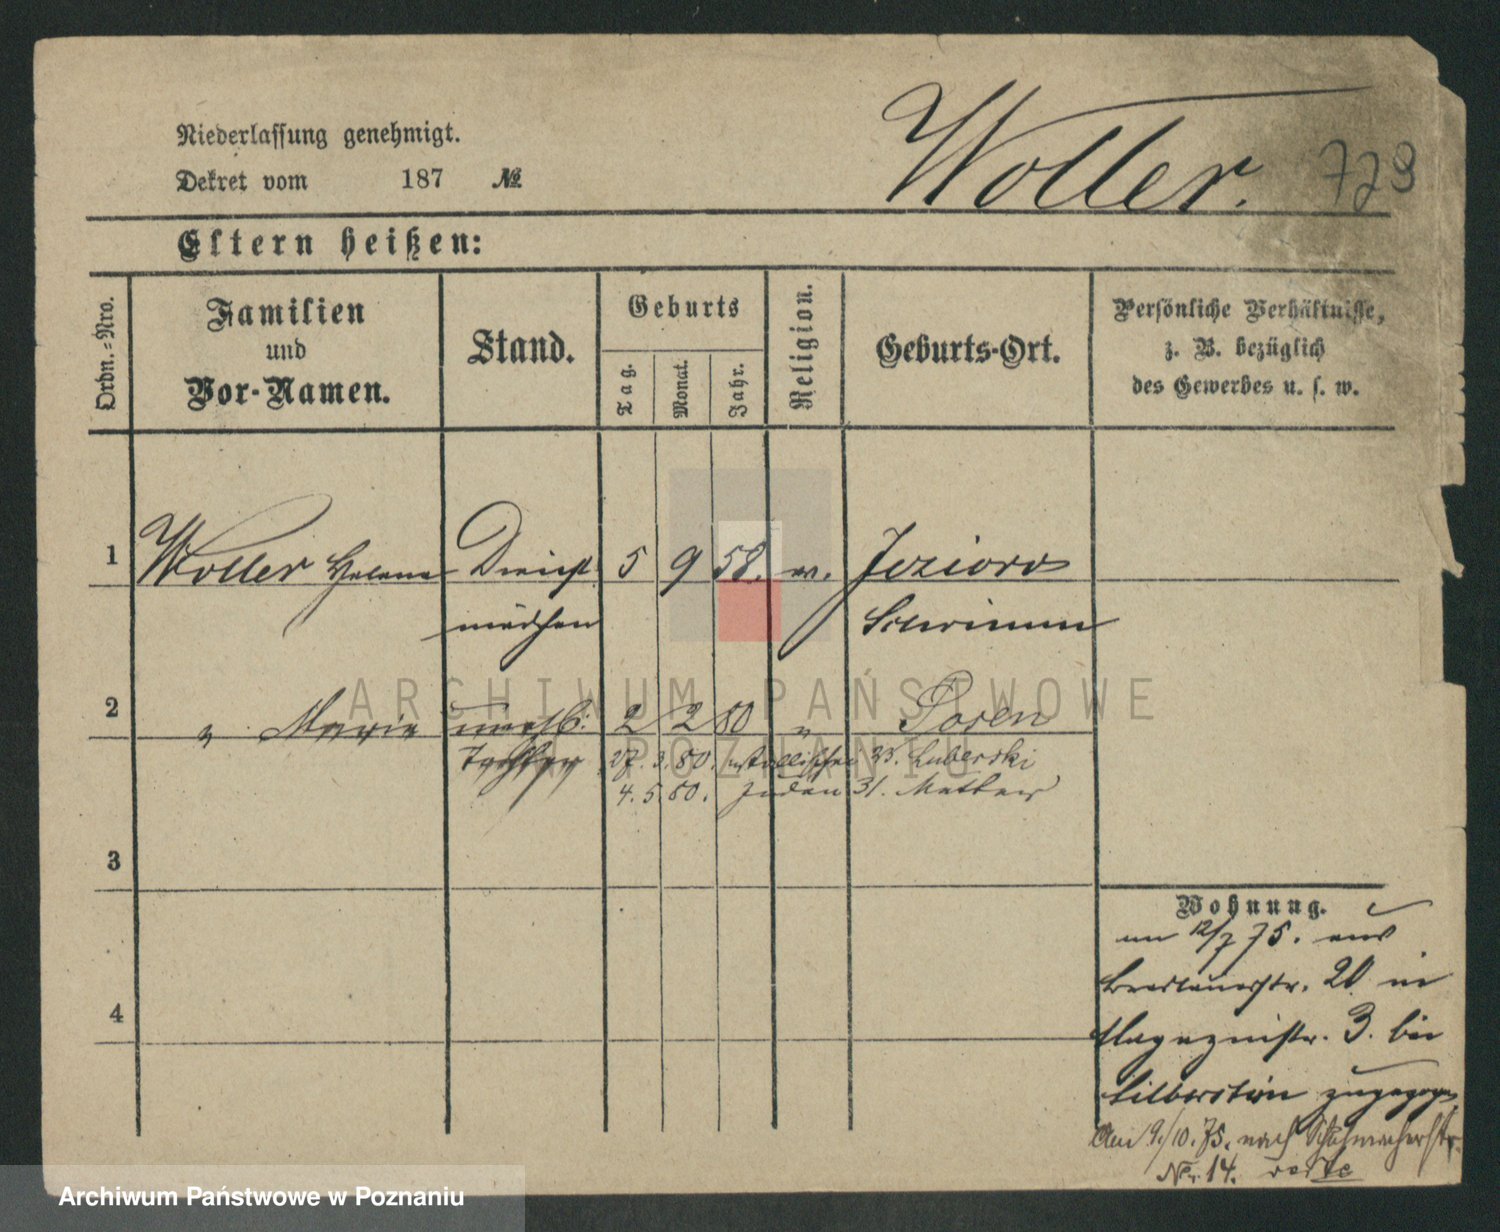 Niederlassung genehmigt.
Dekret vom 187 №
Woller. 729
Eltern heißen:
Ordn.-Nro.
Familien
und
Vor-Namen.
Stand.
Geburts
Tag.
Monat.
Jahr.
Religion.
Geburts-Ort.
Persönliche Verhältnisse,
z. B. bezüglich
des Gewerbes u. s. w.
1 Woller Helena Dienst 5 9 58. Jeziora
mädchen Schrimm
2 " Marie unehl: 2 2 80 " Posen
Tochter 27. 3. 80. 33. Luberski
4. 5. 80. Juden 31.
3
4
Wohnung.
am 12/7 75. aus
Breslauerstr. 20 in
Magazinstr. 3. bei
Silberstein zugezogen
Am 9./10. 75. nach Schuhmacherstr.
Nr. 14.
ARCHIWUM PAŃSTWOWE
W POZNANIU
Archiwum Państwowe w Poznaniu